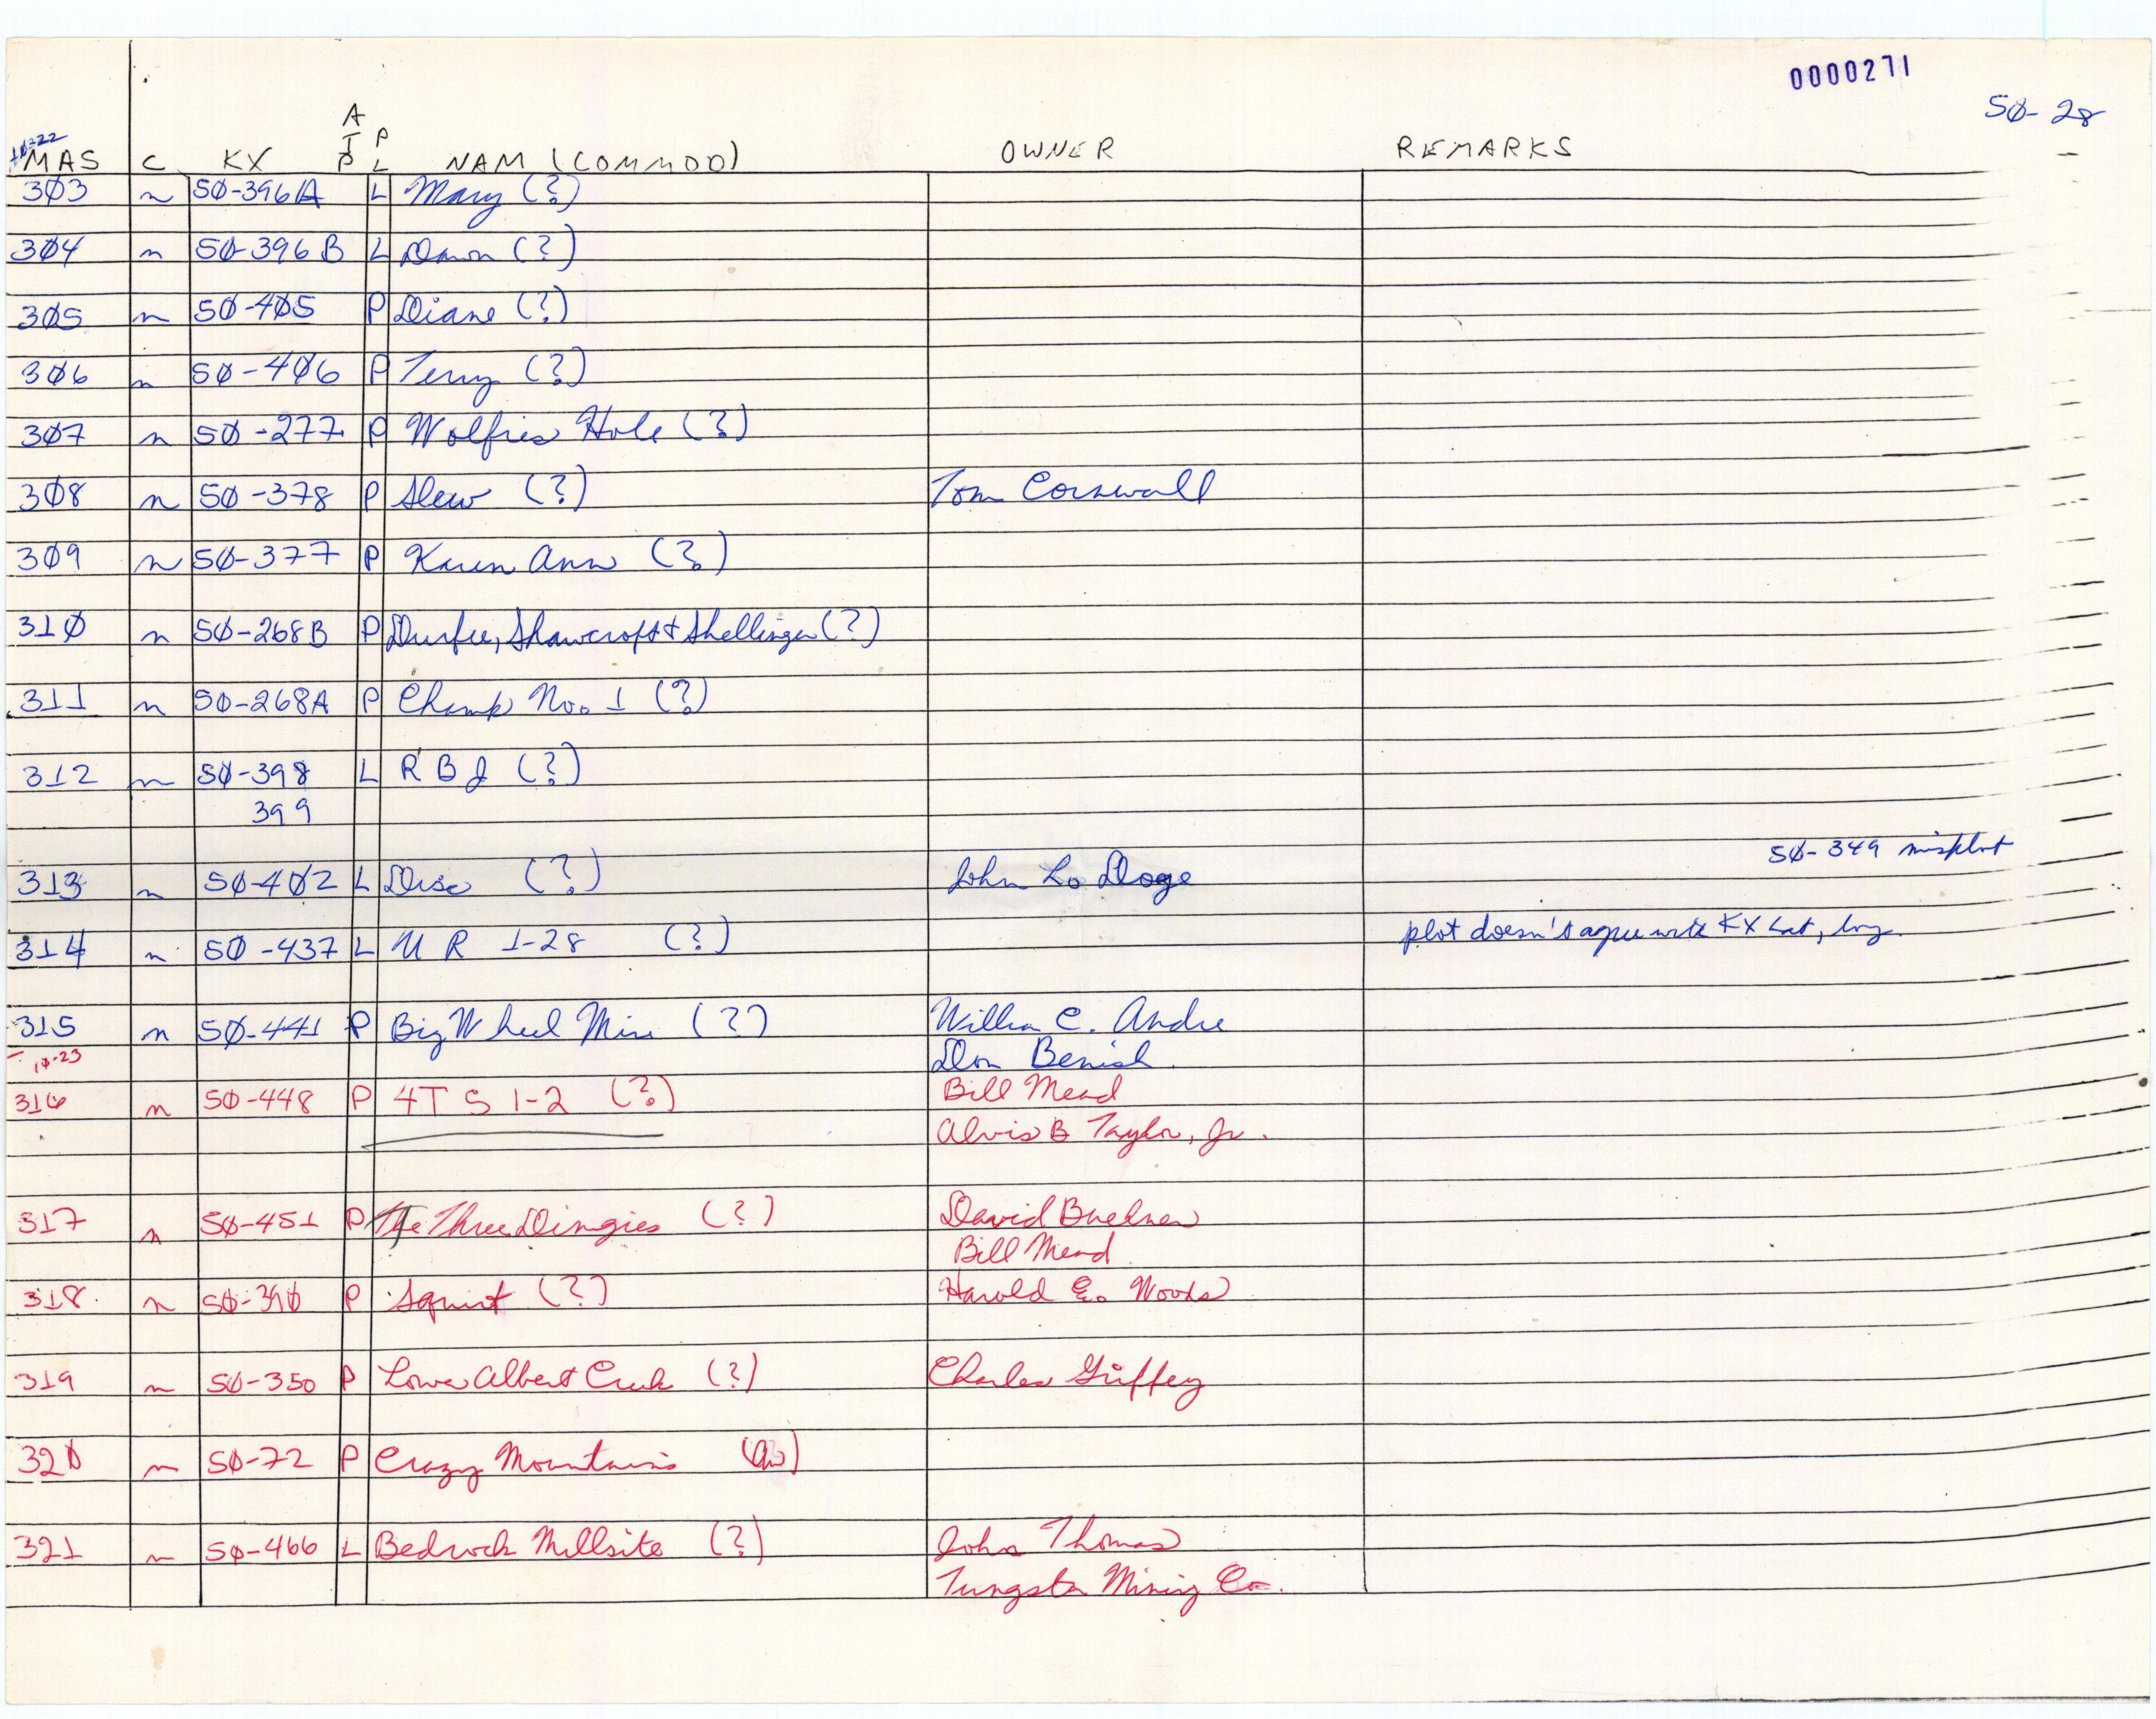 0000271
50-28
10-22
A
T P
MAS C KX P L NAM (COMMOD) OWNER REMARKS
303 n 50-396A L Mary (?)
304 n 50-396B L Dawn (?)
305 n 50-405 P Diane (?)
306 n 50-406 P Terry (?)
307 n 50-277 P Wolfries Hole (?)
308 n 50-378 P Slew (?) Tom Cornwall
309 n 50-377 P Karen Ann (?)
310 n 50-268B P Durfee, Shawcroft + Shellinger (?)
311 n 50-268A P Champ No. 1 (?)
312 n 50-398 L R B J (?)
399
50-349 misplot
313 n 50-402 L Disc (?) John Lo Doge
314 n 50-437 L U R 1-28 (?) plot doesn't agree with KX Lat, long
315 n 50-441 P Big Wheel Mine (?) William C. Andre
10-23 Don Benish
316 n 50-448 P 4T S 1-2 (?) Bill Mead
Alvis B Taylor, Jr.
317 n 50-451 P The Three Dingies (?) David Buelner
Bill Mead
318 n 50-390 P Squirt (?) Harold E. Woods
319 n 50-350 P Lower Albert Creek (?) Charles Guffey
320 n 50-72 P Crazy Mountains
321 n 50-466 L Bedrock Millsite (?) John Thomas
Tungsten Mining Co.